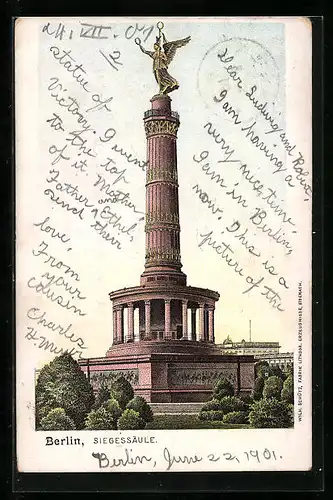 24. VII. 01.
2
Dear Ludwig and Robie,
I am having a
very nice time,
I am in Berlin,
now, This is a
picture of the
statue of
Victory. I went
to the top
of it. Mother,
Father and Ethel,
send their
love,
From
your
Cousin
Charles
Berlin, SIEGESSÄULE.
Berlin, June 22, 1901.
WILH. SCHÜTZ, FABRIK LITHOGR. ERZEUGNISSE, EISENACH.